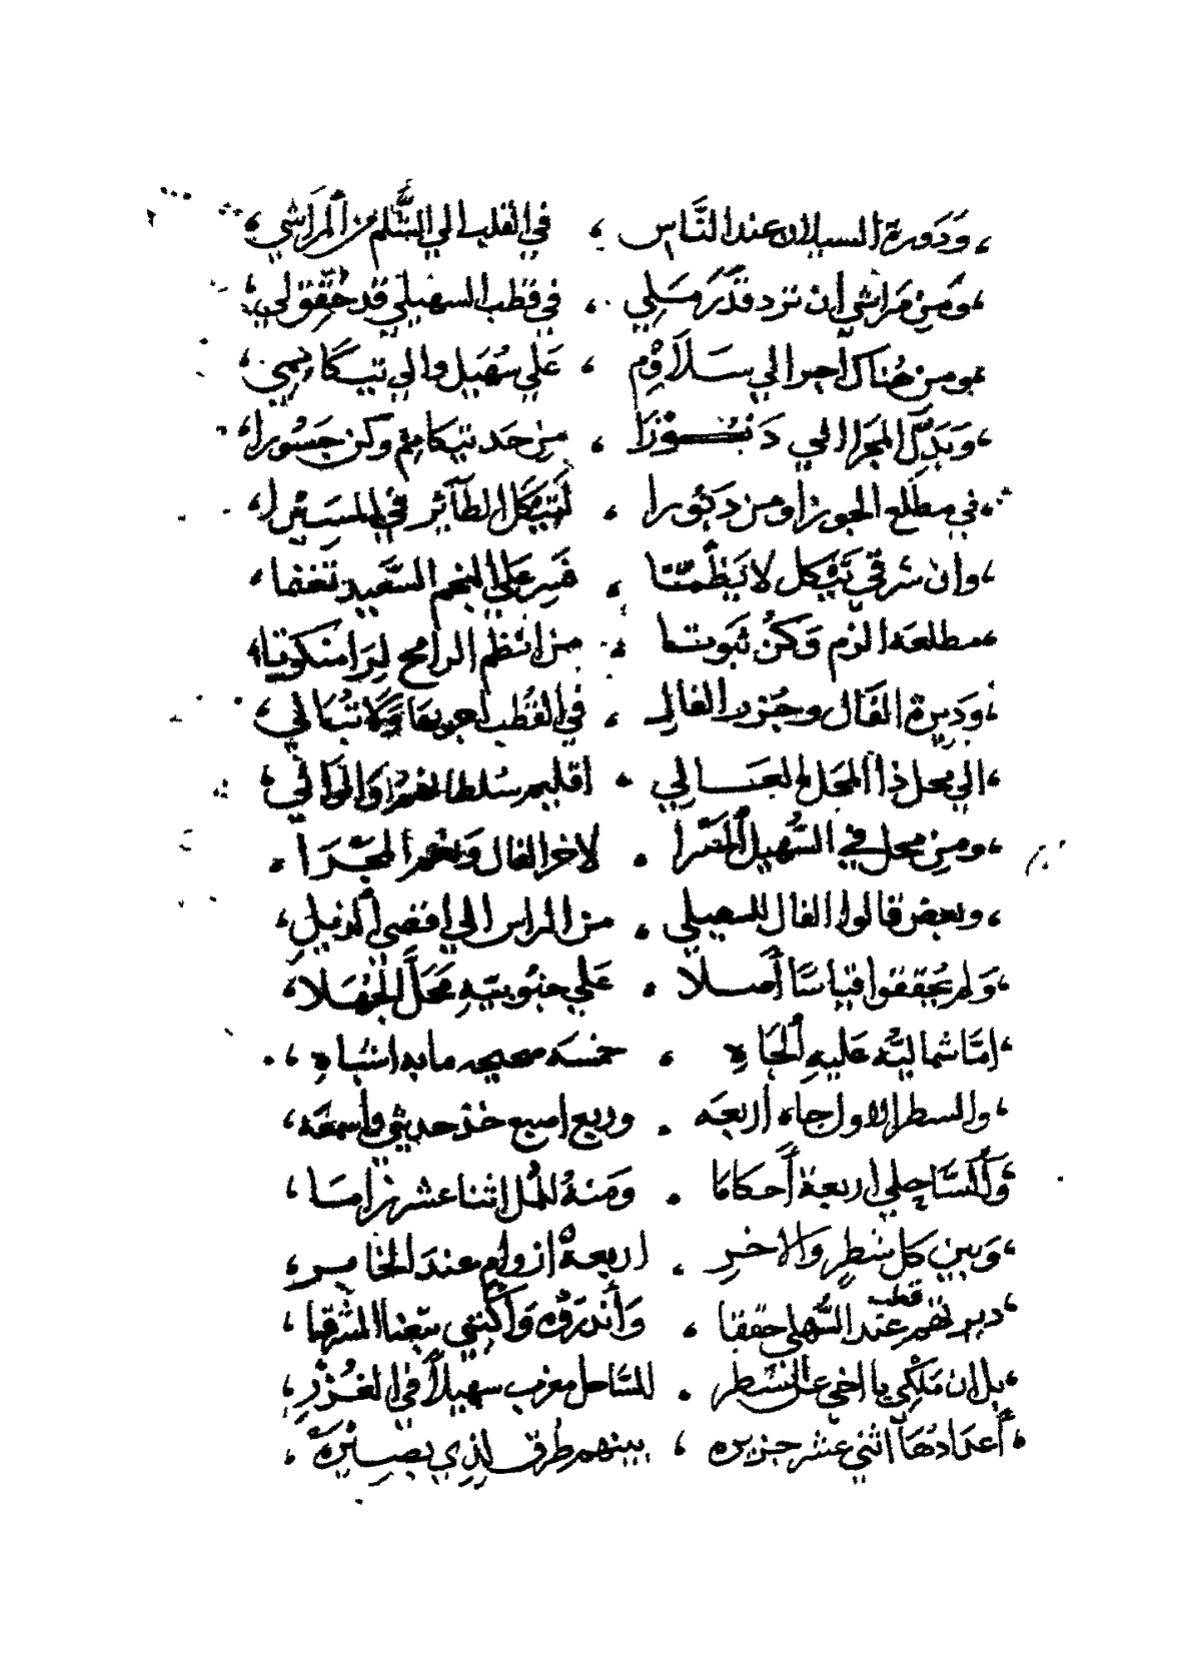 ودورة السيلان عند الناس ، في القلب الي السلم من المراشي
ومن مراشي ان ترد قدر مسلي ، في قطب السهيلي قد حققوا لي
ومن هناك اجرا الي سلاروم ، علي سهيل والي تيكاريمي
وبدل المجرا الي دنور ا ، من حد تيكامتم وكن جسورا
في مطلع الجوزا ومن دبورا ، لتيكل الطآئر في المسيرا
وان شرقي تيكل لا يظمتا ، فسر علي النجم السعيد تغنما
مطلعه الزم وكن ثبوتا ، من انتظم الرامح لبرامنكوتا
وديرة الفال وجزر الفال ، في القطب
الي محل ذا المحل العالي ، اقليم سلطانهم والوالي
ومن محل في السهيل المقرا ، لاخر الفال ونعم المجرا
وبعض قالوا الفال للسهيلي ، من الراس الي اقصي الذيل
ولم يحققوا قياسا أصلا ، علي جنوبيه محل الجهلا
امّا شماليّه عليهِ الجاهِ ، خمسه صحيحه مابه اشتباهِ
والسطر الاول جاه أربعه ، وربع اصبع خذ حديثي واسمعه
والساحلي اربعة أحكاما ، ومنهُ للمل اثنا عشر زاما
وبين كل شطرٍ والاخرِ ، اربعة ازوام عند الخابر
ديرتهم عند قطب السهلي حققا ، وأندروه وأكتني بتعنا المشرقا
بل ان ملكي يا اخي عالشطر ، للساحل مغرب سهيلا في الغزر
أعدادها اثني عشر جزيره ، بينهم طرق لذي بصيره